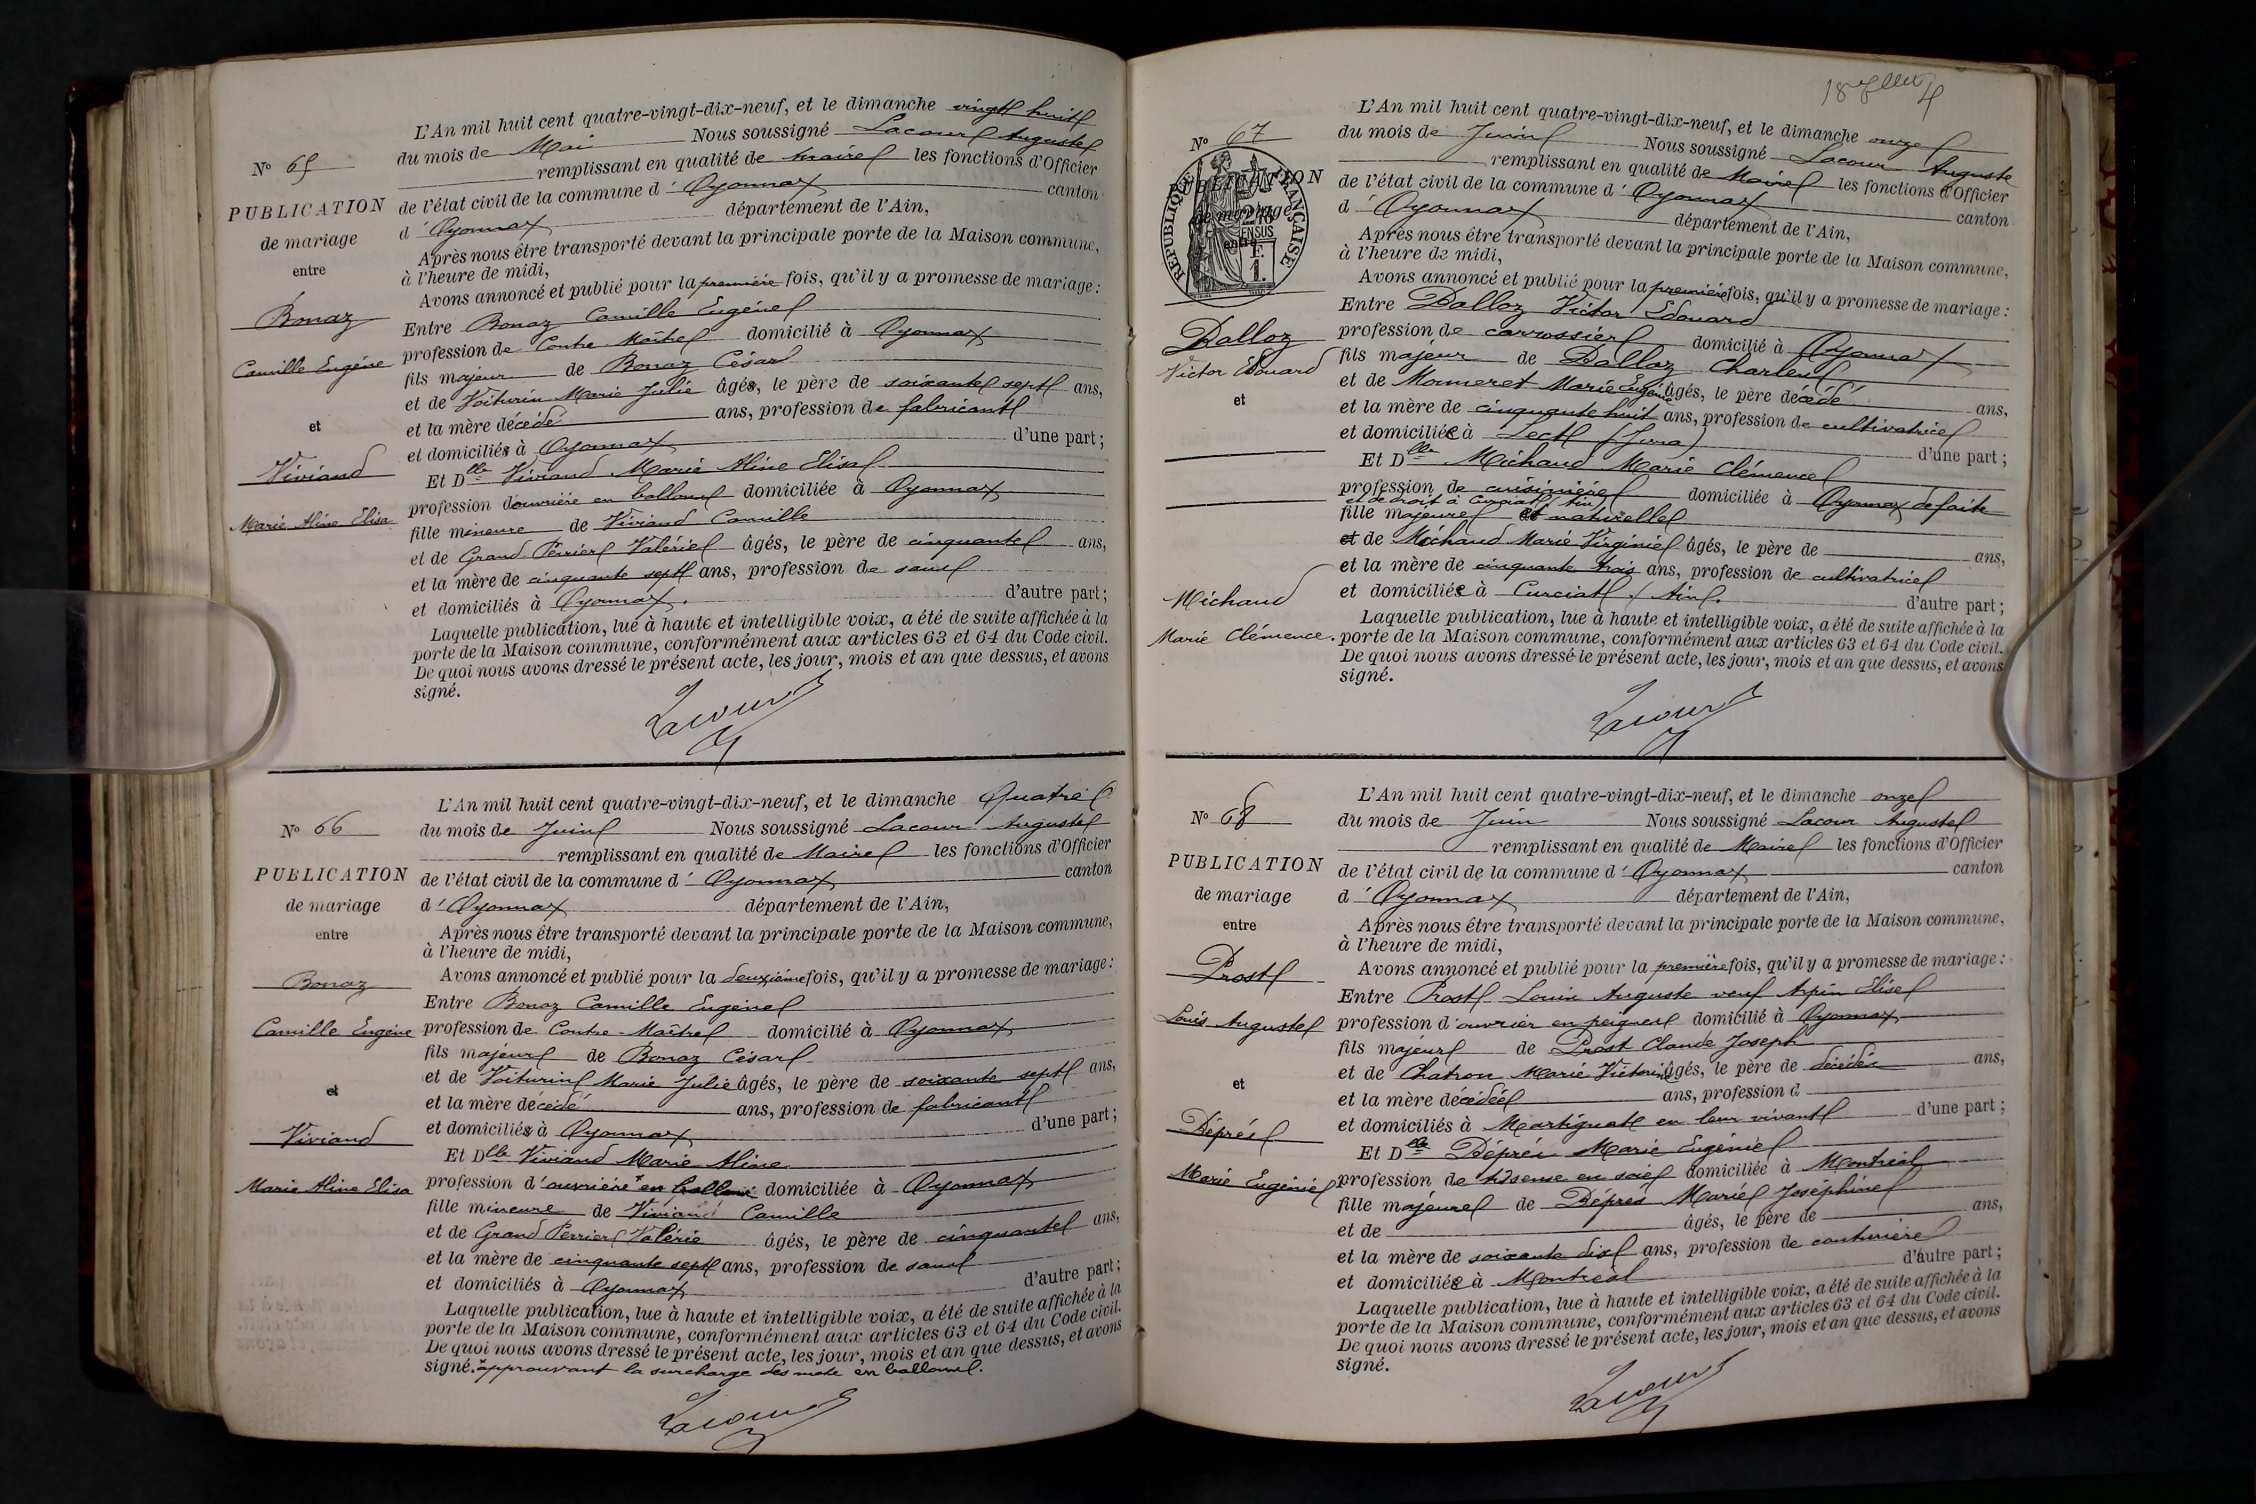 L'An mil huit cent quatre-vingt-dix-neuf, et le dimanche vingt huit
du mois de Mai Nous soussigné Lacour Auguste
remplissant en qualité de maire les fonctions d'Officier
de l'état civil de la commune d'Oyonnax canton
d'Oyonnax département de l'Ain,
Après nous être transporté devant la principale porte de la Maison commune,
à l'heure de midi,
Avons annoncé et publié pour la première fois, qu'il y a promesse de mariage:
Entre Bonaz Camille Eugène
profession de Contre-Maître domicilié à Oyonnax
fils majeur de Bonaz César
et de Voiturin Marie Julie âgés, le père de soixante sept ans,
et la mère décédé ans, profession de fabricant
et domiciliés à Oyonnax d'une part;
Et Dlle Viviand Marie Aline Elisa
profession d'ouvrière en domiciliée à Oyonnax
fille mineure de Viviand Camille
et de Grand Perrier Valérie âgés, le père de cinquante ans,
et la mère de cinquante sept ans, profession de sans
et domiciliés à Oyonnax. d'autre part;
Laquelle publication, lue à haute et intelligible voix, a été de suite affichée à la
porte de la Maison commune, conformément aux articles 63 et 64 du Code civil.
De quoi nous avons dressé le présent acte, les jour, mois et an que dessus, et avons
signé.
Lacour
No 65
PUBLICATION
de mariage
entre
Bonaz
Camille Eugène
et
Viviand
Marie Aline Elisa
L'An mil huit cent quatre-vingt-dix-neuf, et le dimanche Quatre
du mois de Juin Nous soussigné Lacour Auguste
remplissant en qualité de Maire les fonctions d'Officier
de l'état civil de la commune d'Oyonnax canton
d'Oyonnax département de l'Ain,
Après nous être transporté devant la principale porte de la Maison commune,
à l'heure de midi,
Avons annoncé et publié pour la deuxième fois, qu'il y a promesse de mariage:
Entre Bonaz Camille Eugène
profession de Contre-Maître domicilié à Oyonnax
fils majeur de Bonaz César
et de Voiturin Marie Julie âgés, le père de soixante sept ans,
et la mère décédé ans, profession de fabricant
et domiciliés à Oyonnax d'une part;
Et Dlle Viviand Marie Aline
profession d'ouvrière en domiciliée à Oyonnax
fille mineure de Viviand Camille
et de Grand Perrier Valérie âgés, le père de cinquante ans,
et la mère de cinquante sept ans, profession de sans
et domiciliés à Oyonnax d'autre part;
Laquelle publication, lue à haute et intelligible voix, a été de suite affichée à la
porte de la Maison commune, conformément aux articles 63 et 64 du Code civil.
De quoi nous avons dressé le présent acte, les jour, mois et an que dessus, et avons
signé. approuvant la surcharge des mots en
Lacour
No 66
PUBLICATION
de mariage
entre
Bonaz
Camille Eugène
et
Viviand
Marie Aline Elisa
L'An mil huit cent quatre-vingt-dix-neuf, et le dimanche onze
du mois de Juin Nous soussigné Lacour Auguste
remplissant en qualité de Maire les fonctions d'Officier
de l'état civil de la commune d'Oyonnax canton
d'Oyonnax département de l'Ain,
Après nous être transporté devant la principale porte de la Maison commune,
à l'heure de midi,
Avons annoncé et publié pour la première fois, qu'il y a promesse de mariage:
Entre Dalloz Victor Edouard
profession de carrossier domicilié à Oyonnax
fils majeur de Dalloz Charles
et de Monneret Marie Eugénie âgés, le père décédé ans,
et la mère de cinquante huit ans, profession de cultivatrice
et domiciliée à Lect (Jura) d'une part;
Et Dlle Michaud Marie Clémence
profession de cuisinière domiciliée à Oyonnax de fait
et de droit à Curciat (Ain)
fille majeure et naturelle
et de Michaud Marie Virginie âgés, le père de ans,
et la mère de cinquante trois ans, profession de cultivatrice
et domiciliée à Curciat / Ain. d'autre part;
Laquelle publication, lue à haute et intelligible voix, a été de suite affichée à la
porte de la Maison commune, conformément aux articles 63 et 64 du Code civil.
De quoi nous avons dressé le présent acte, les jour, mois et an que dessus, et avons
signé.
Lacour
No 67
PUBLICATION
de mariage
entre
RÉPUBLIQUE FRANÇAISE
Dalloz
Victor Edouard
et
Michaud
Marie Clémence.
L'An mil huit cent quatre-vingt-dix-neuf, et le dimanche onze
du mois de Juin Nous soussigné Lacour Auguste
remplissant en qualité de Maire les fonctions d'Officier
de l'état civil de la commune d'Oyonnax canton
d'Oyonnax département de l'Ain,
Après nous être transporté devant la principale porte de la Maison commune,
à l'heure de midi,
Avons annoncé et publié pour la première fois, qu'il y a promesse de mariage:
Entre Prost Louis Auguste veuf Arpin Elise
profession d'ouvrier en peignes domicilié à Oyonnax
fils majeur de Prost Claude Joseph
et de Chatron Marie Victorine âgés, le père de décédés ans,
et la mère décédée ans, profession d
et domiciliés à Martignat en leur vivant d'une part;
Et Dlle Déprés Marie Eugénie
profession de tisseuse en soie domiciliée à Montréal
fille majeure de Déprés Marie Joséphine
et de âgés, le père de ans,
et la mère de soixante dix ans, profession de couturière
et domiciliée à Montréal d'autre part;
Laquelle publication, lue à haute et intelligible voix, a été de suite affichée à la
porte de la Maison commune, conformément aux articles 63 et 64 du Code civil.
De quoi nous avons dressé le présent acte, les jour, mois et an que dessus, et avons
signé.
Lacour
No 68
PUBLICATION
de mariage
entre
Prost
Louis Auguste
et
Déprés
Marie Eugénie